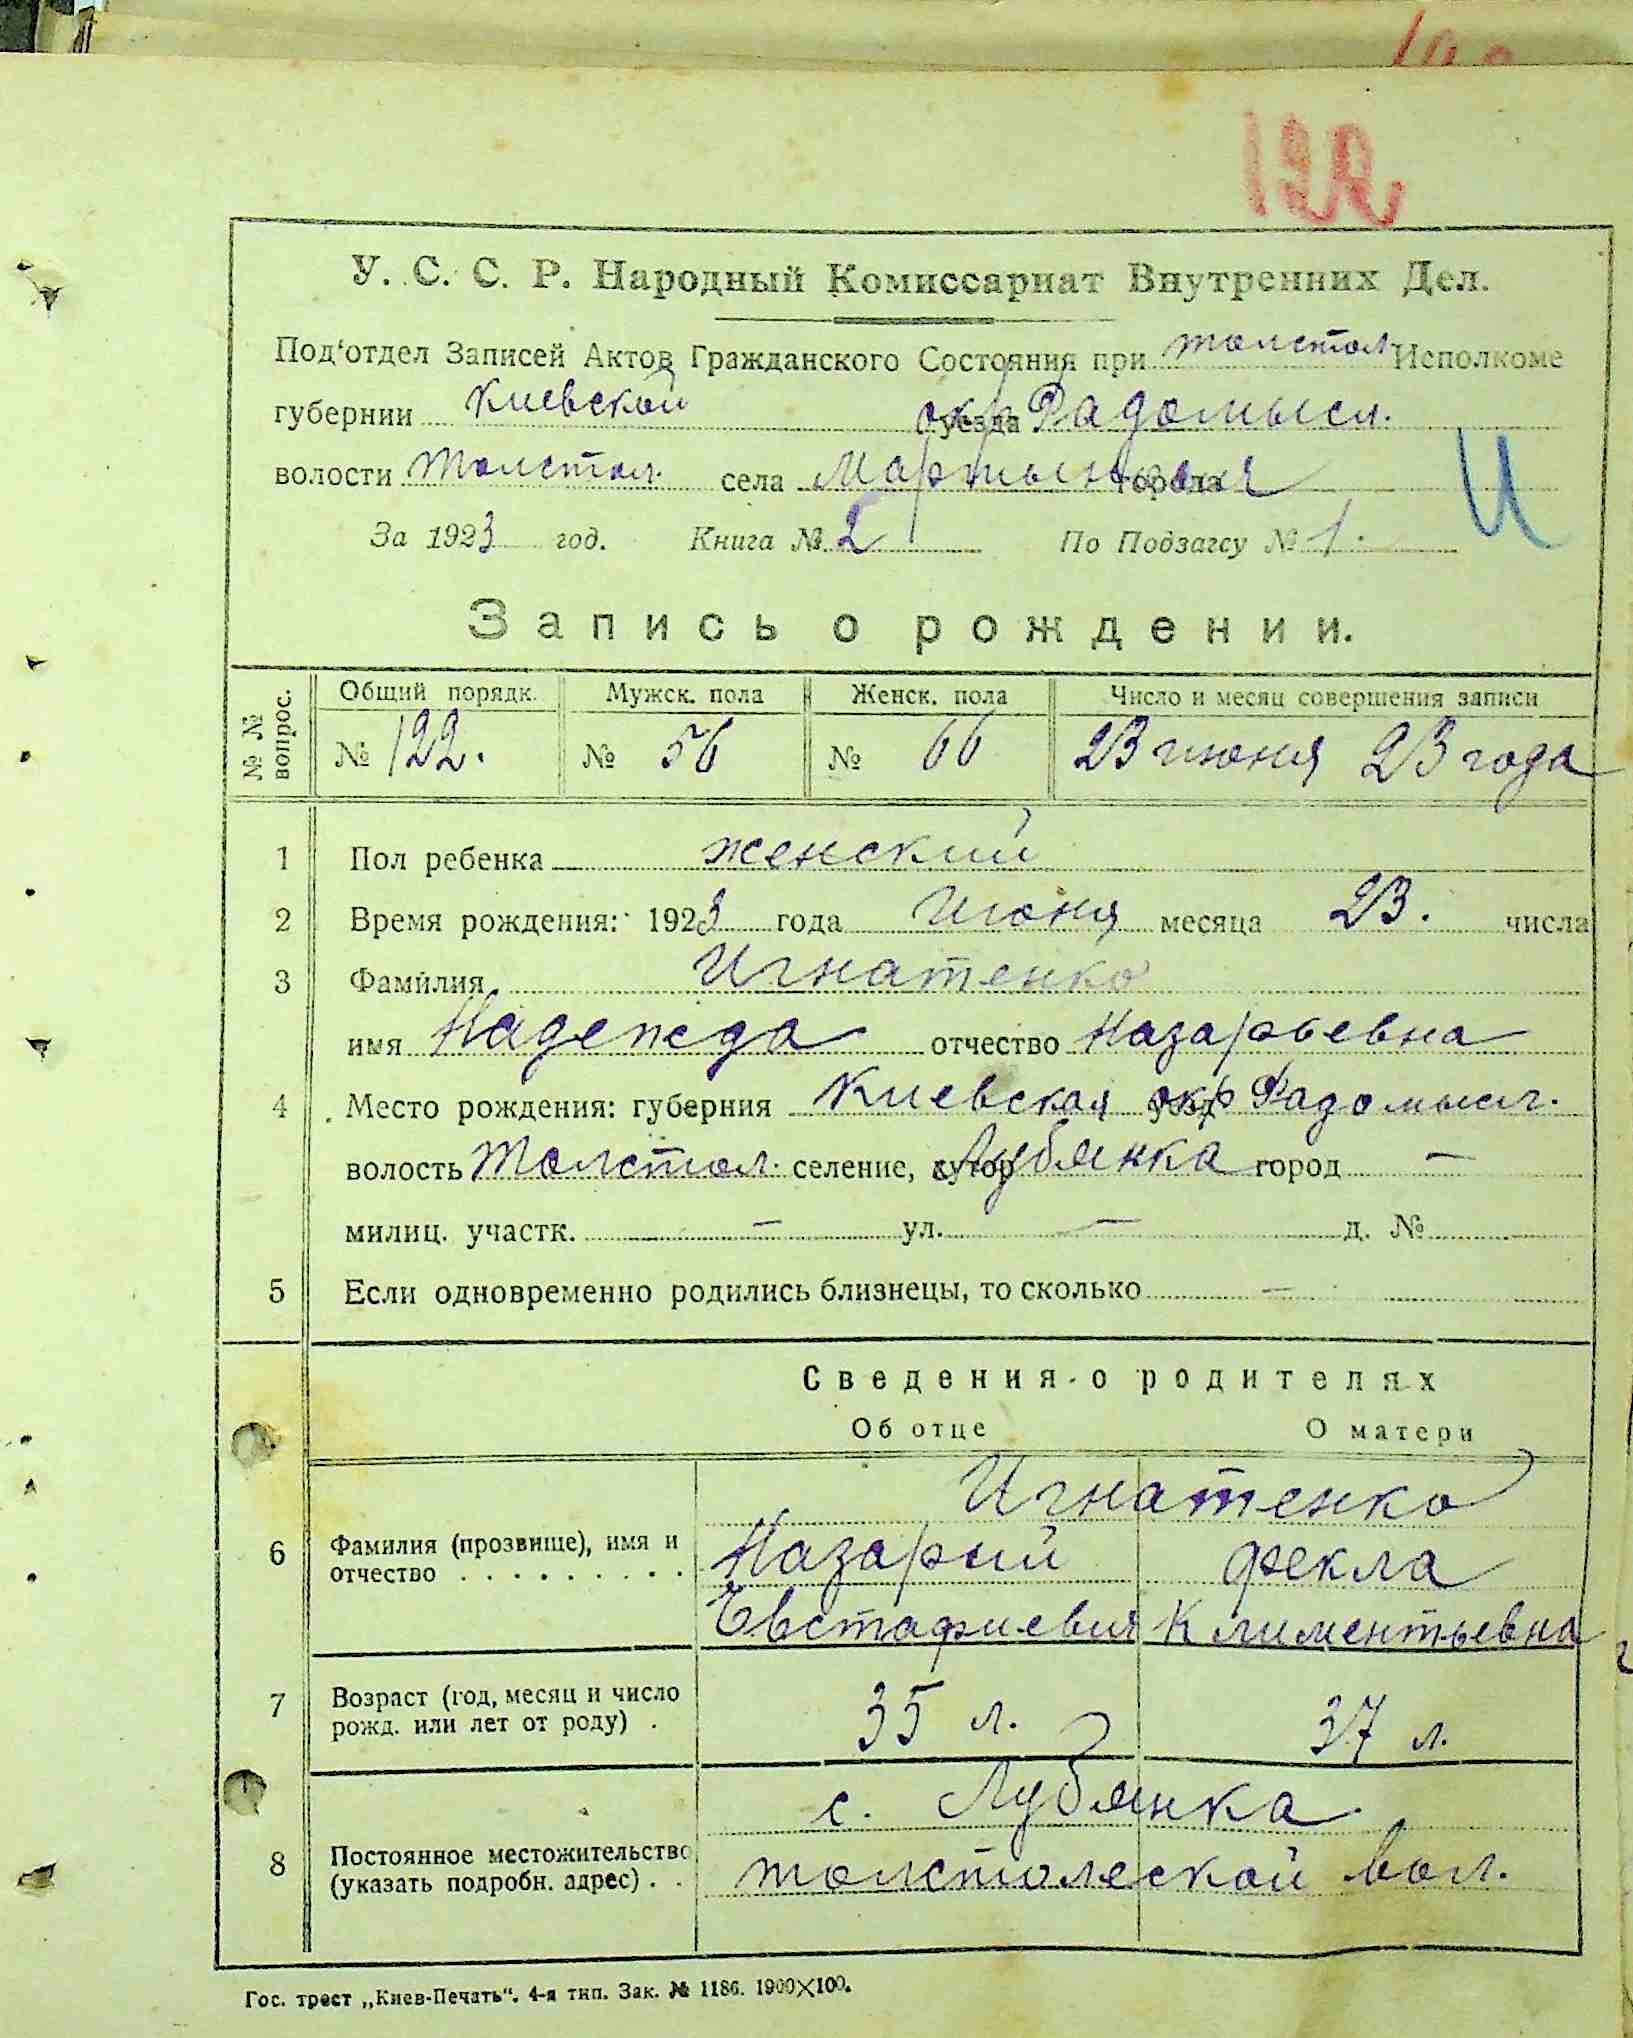 122
У. С. С. Р. Народный Комиссариат Внутренних Дел.
Под'отдел Записей Актов Гражданского Состояния при толстол Исполкоме
губернии Киевской уезда окр Радомысл.
волости Толстол. села города
За 1923 год. Книга № 2 По Подзагсу № 1.
И
Запись о рождении.
№ № вопрос. Общий порядк. Мужск. пола Женск. пола Число и месяц совершения записи
№ 122. № 56 № 66 23 июня 23 года
1 Пол ребенка женский
2 Время рождения: 1923 года Июня месяца 23. числа
3 Фамилия Игнатенко
имя Надежда отчество Назарьевна
4 Место рождения: губерния Киевская уезд окр Радомысл.
волость Толстол. селение, хутор Лубянка город —
милиц. участк. — ул. — д. №
5 Если одновременно родились близнецы, то сколько —
Сведения о родителях
Об отце О матери
Игнатенко
6 Фамилия (прозвище), имя и Назарий Фекла
отчество . . . . . . . . . . Евстафиевич Климентьевна
7 Возраст (год, месяц и число 35 л. 37 л.
рожд. или лет от роду) .
с. Лубянка
8 Постоянное местожительство толстолеской вол.
(указать подробн. адрес) . .
Гос. трест „Киев-Печать“. 4-я тип. Зак. № 1186. 1900×100.